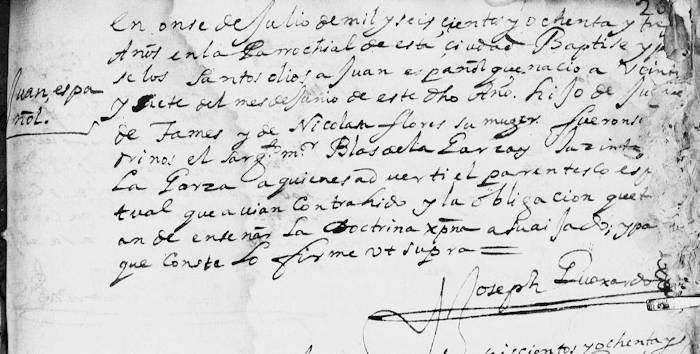 20
En onse de Julio de mil y seis cientos y ochenta y tres
Años en la Parrochial de esta ciudad Baptise y pu
se los santos olios a Juan español que nacio a veinte
y siete del mes de Junio de este dho Año. hijo de Ju
de Tames y de Nicolasa flores su muger. fueron sus
Juan, espa
ñol.
drinos el sargto mr Blas de la Garza y Jazinta
La Garza a quienes ad verti el parentesco espi
tual que avian contrahido y la obligacion que t
an de enseñar La Doctrina xpna a su aijado, y pa
que conste lo firme vt supra
Joseph Guaxardo
seiscientos y ochenta y